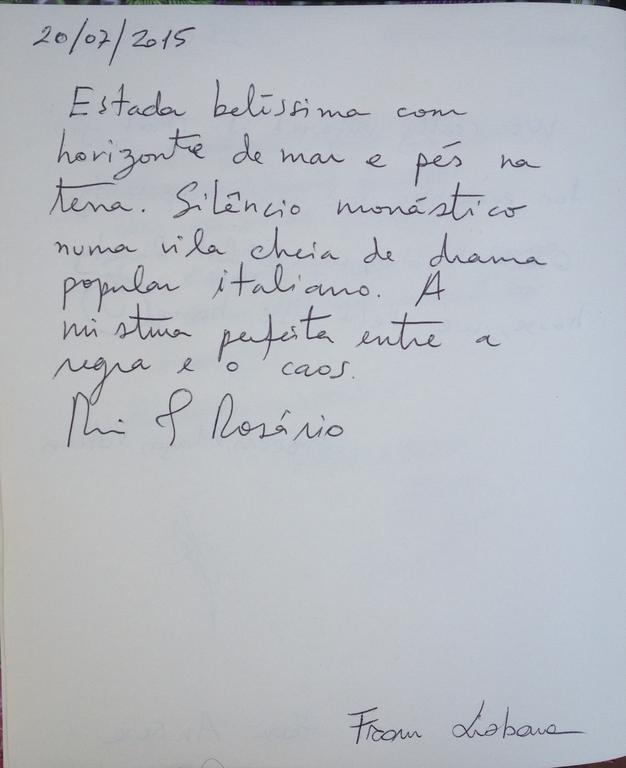 20/07/2015
Estada belíssima com
horizonte de mar e pés na
terra. Silêncio monástico
numa vila cheia de drama
popular italiano. A
mistura perfeita entre a
regra e o caos.
Rui & Rosário
From Lisbona